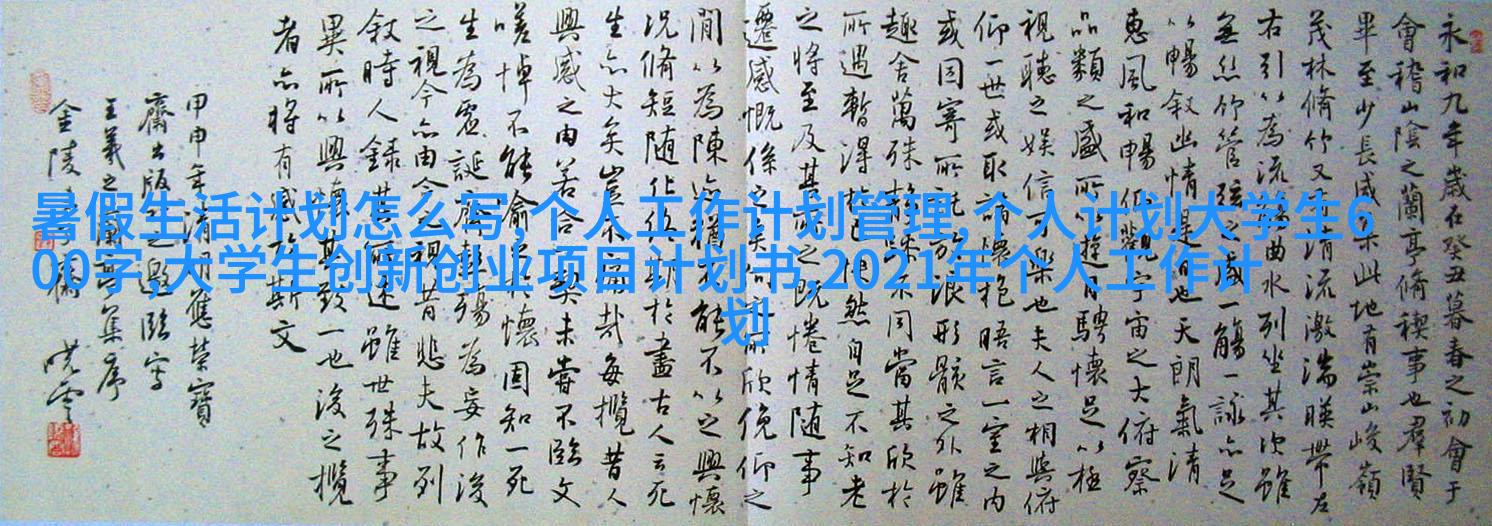 暑假生活计划怎么写,个人工作计划管理,个人计划大学生6
00字,大学生创新创业项目计划书,2021年个人工作计
划
永和九年歲在癸丑暮春之初會于
會稽山陰之蘭亭脩稧事也羣賢
畢至少長咸集此地有崇山峻嶺
茂林脩竹又有清流激湍暎帶左
右引以為流觴曲水列坐其次雖
無絲竹管弦之盛一觴一詠亦足
以暢敘幽情是日也天朗氣清
惠風和暢仰觀宇宙之大俯察
品類之盛所以遊目騁懷足以極
視聽之娛信可樂也夫人之相與俯
仰一世或取諸懷抱晤言一室之內
或因寄所託放浪形骸之外雖
趣舍萬殊靜躁不同當其欣於
所遇暫得於己快然自足不知老
之將至及其所之既惓情随事
遷感慨係之矣向之所欣俛仰之
間以為陳迹猶不能不以之興懷
況脩短随化終期於盡古人云死
生亦大矣豈不痛哉每攬昔人
興感之由若合一契未嘗不臨文
嗟悼不能喻之於懷固知一死
生為虛誕齊彭殤為妄作後
之視今亦由今之視昔悲夫故列
敘時人錄其所述雖世殊事
異所以興懷其致一也後之攬
者亦將有感於斯文
甲申年清明應榮寶
齋出版之邀臨寫
王羲之蘭亭集序
金陵